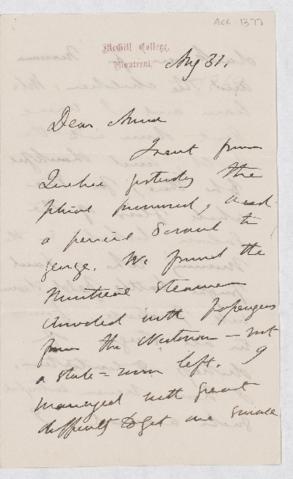 ACC 1377
McGill College,
Montreal.
Aug 31.
Dear Anna
I sent from
Quebec yesterday the
promised, and
a period servant to
George. We found the
Montreal steamer
crowded with passengers
from the – not
a state-room left. I
managed with great
difficulty to get one small